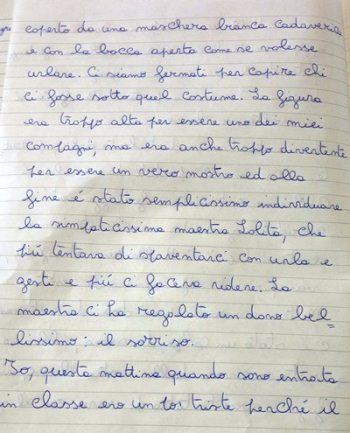 coperto da una maschera bianca cadaverica
e con la bocca aperta come se volesse
urlare. Ci siamo fermati per capire chi
ci fosse sotto quel costume. La figura
era troppo alta per essere uno dei miei
compagni, ma era anche troppo divertente
per essere un vero mostro ed alla
fine é stato semplicissimo individuare
la simpaticissima maestra Lolita, che
piú tentava di spaventarci con urla e
gesti e piú ci faceva ridere. La
maestra ci ha regalato un dono bel=
lissimo: il sorriso.
Io, questa mattina quando sono entrata
in classe ero un po' triste perché il